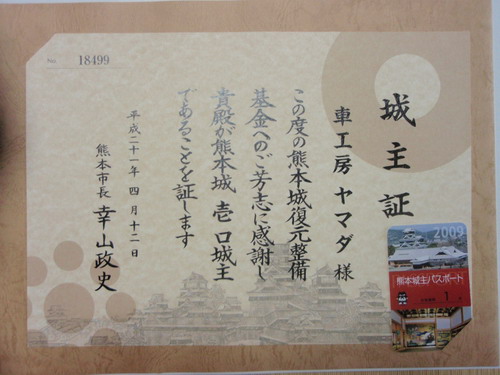 No. 18499
城主証
車工房 ヤマダ 様
この度の熊本城復元整備
基金へのご芳志に感謝し
貴殿が熊本城 壱 口城主
であることを証します
平成二十一年 四月 十二日
熊本市長 幸山政史
2009
熊本城主パスポート
1